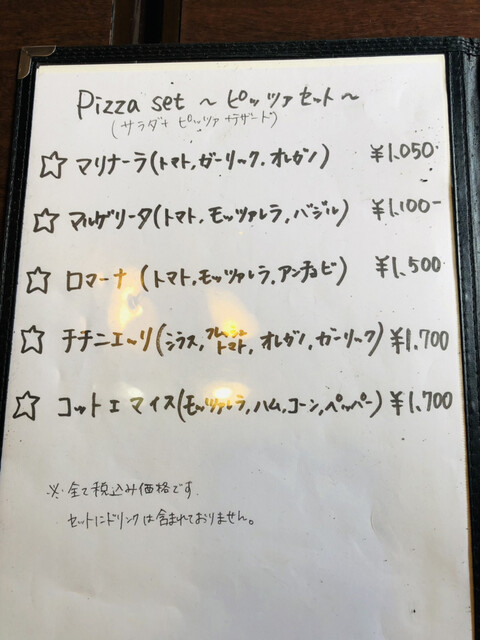 Pizza set ～ピッツァセット～
(サラダ+ピッツァ+デザート)
☆ マリナーラ(トマト,ガーリック,オレガノ) ¥1,050
☆ マルゲリータ(トマト,モッツァレラ,バジル) ¥1,100-
☆ ロマーナ(トマト,モッツァレラ,アンチョビ) ¥1,500
☆ チチニエッリ(シラス,フレッシュトマト,オレガノ,ガーリック) ¥1,700
☆ コット エ マイス(モッツァレラ,ハム,コーン,ペッパー) ¥1,700
※全て税込み価格です.
セットにドリンクは含まれておりません。